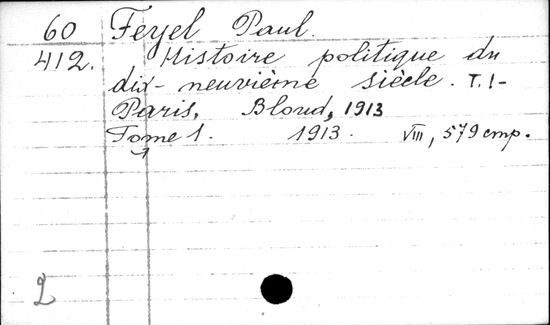 60 Feyel Paul.
412. Histoire politique du
dix-neuvième siècle. T. 1-
Paris, Bloud, 1913
Tome 1. 1913. VIII, 579 cmp.
2